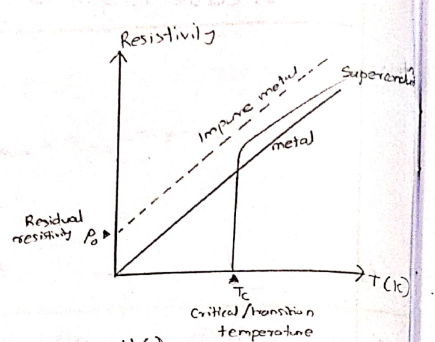 Resistivity
Impure metal
Supercondu
metal
Residual
resistivity ρ₀
T(K)
Tc
Critical/transition
temperature